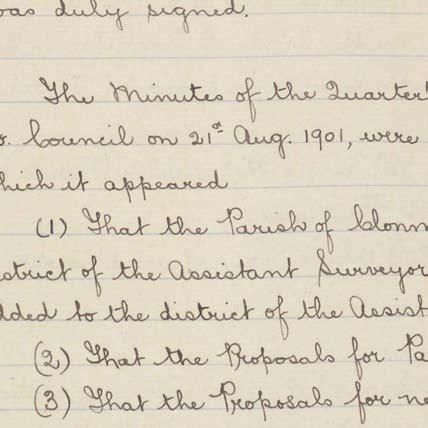 was duly signed.
The Minutes of the Quarterl
o. Council on 21st Aug. 1901, were
which it appeared
(1) That the Parish of Clonm
istrict of the Assistant Surveyor
dded to the district of the Assist
(2) That the Proposals for Pa
(3) That the Proposals for ne